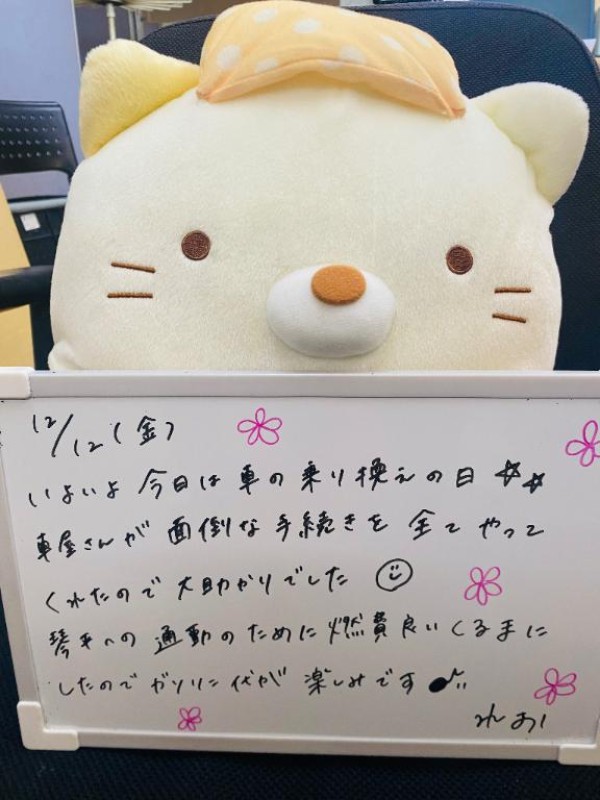 12/12(金)
いよいよ今日は車の乗り換えの日☆☆
車屋さんが面倒な手続きを全てやって
くれたので大助かりでした☺
琴平への通勤のために燃費良いくるまに
したのでガソリン代が楽しみです♪